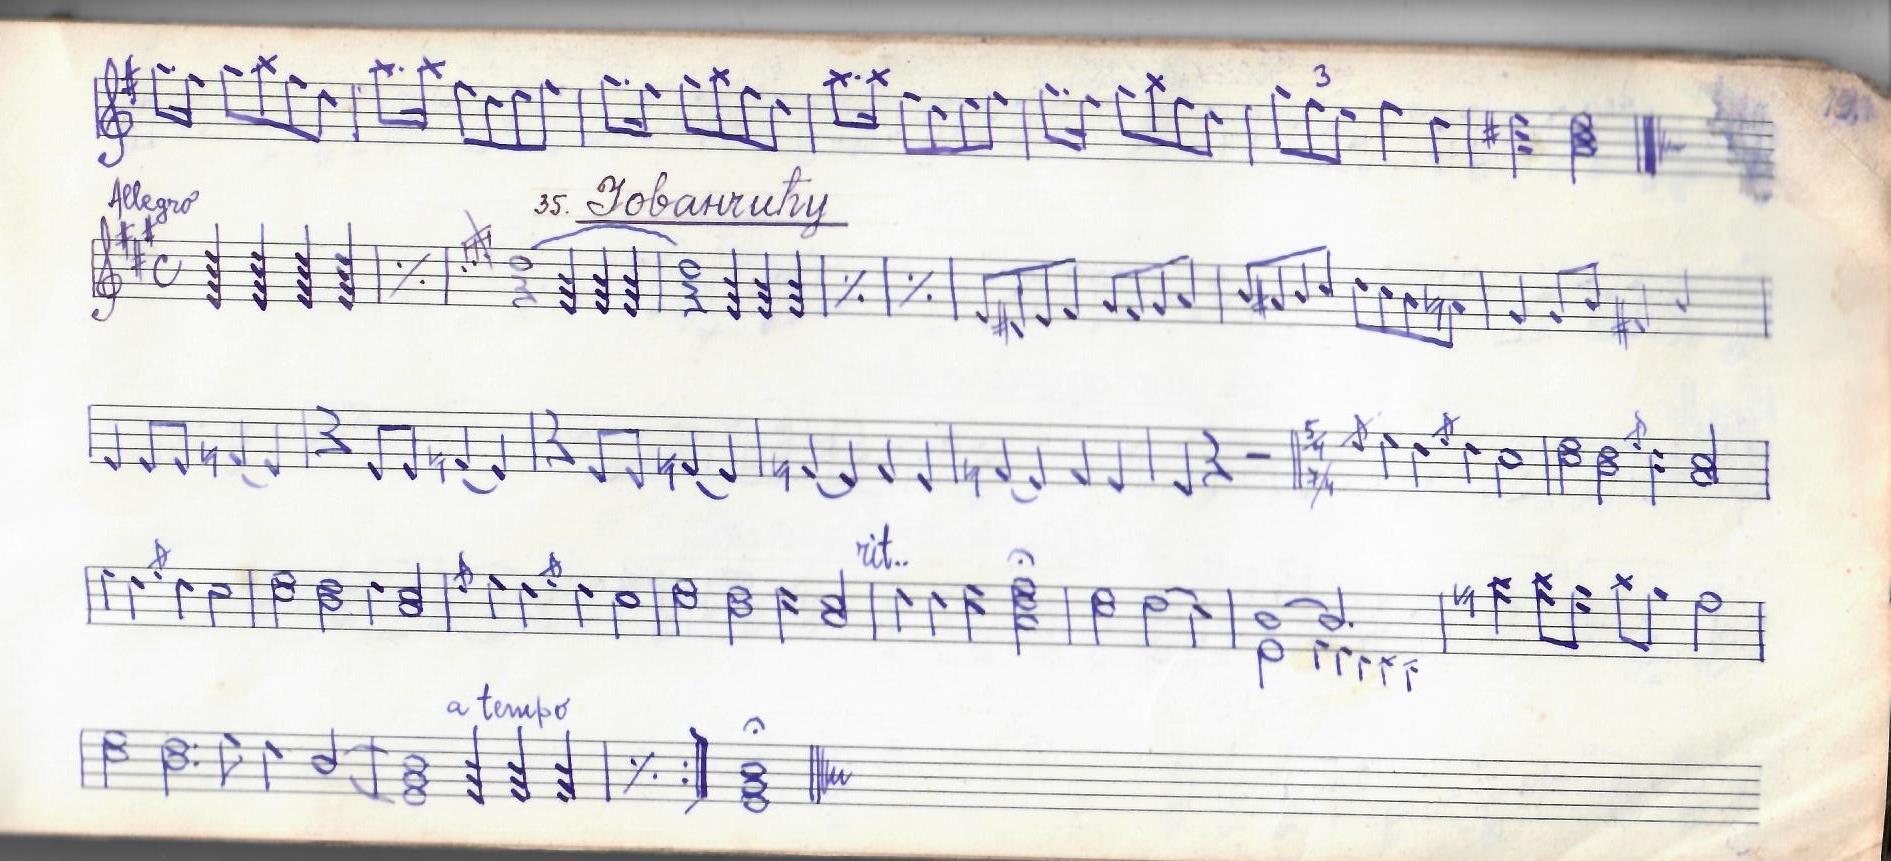 3
Allegro 35. Јованчићу
5/4
7/4
rit..
a tempo